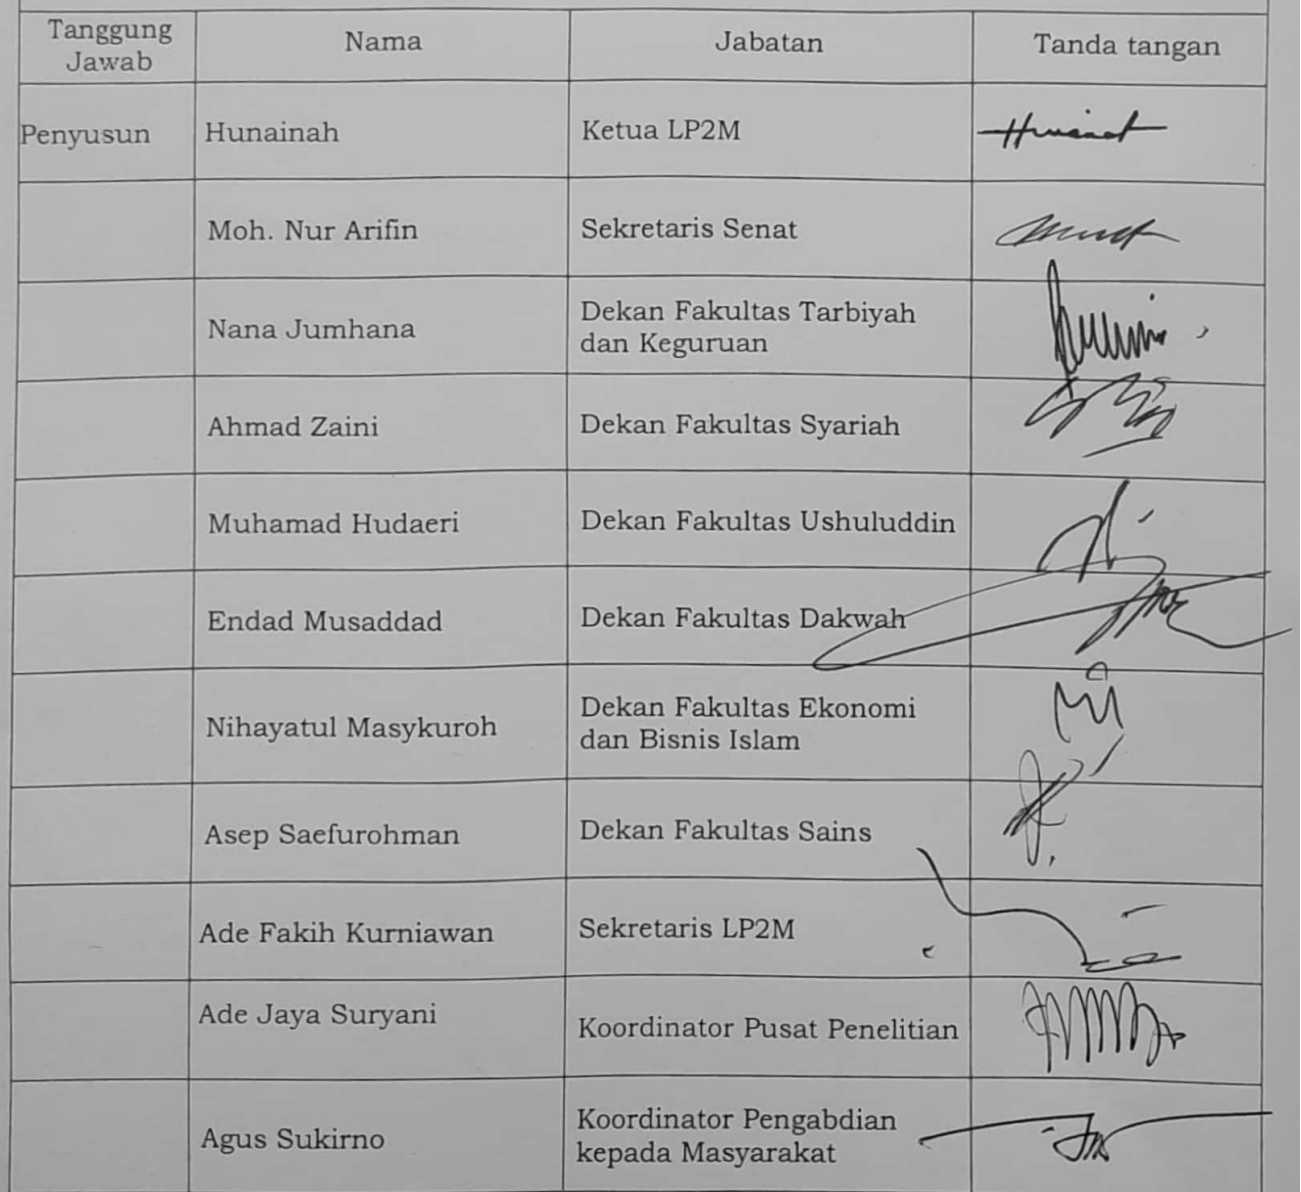 Tanggung Jawab Nama Jabatan Tanda tangan
Penyusun Hunainah Ketua LP2M
Moh. Nur Arifin Sekretaris Senat
Nana Jumhana Dekan Fakultas Tarbiyah
dan Keguruan
Ahmad Zaini Dekan Fakultas Syariah
Muhamad Hudaeri Dekan Fakultas Ushuluddin
Endad Musaddad Dekan Fakultas Dakwah
Nihayatul Masykuroh Dekan Fakultas Ekonomi
dan Bisnis Islam
Asep Saefurohman Dekan Fakultas Sains
Ade Fakih Kurniawan Sekretaris LP2M
Ade Jaya Suryani Koordinator Pusat Penelitian
Agus Sukirno Koordinator Pengabdian
kepada Masyarakat